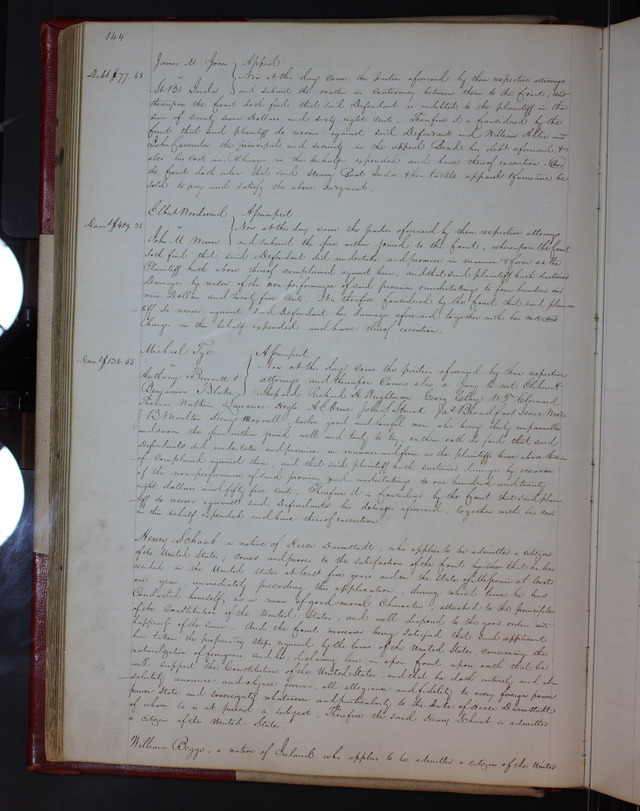 144
James M Jones } Appeal
Debt $77.68 " } Now at this day come the parties aforesaid by their respective attorneys
St Bt and submit the matter in controversy between them to the Court, and
thereupon the Court doth find that said Defendant is indebted to the plaintiff in the
sum of seventy seven Dollars and sixty eight cents. Therefore it is considered by the
Court that said plaintiff do recover against said Defendant and William Allen and
John Cavender the principal and security in the appeal Bond his debt aforesaid &
also his cost and charges in this behalf expended and have thereof execution. And
the Court doth order that said Steam Boat her tackle apparel & furniture be
sold to pay and satisfy the above Judgment.
Elbert Woodward } Assumpsit
Dam $409.25 " } Now at this day come the parties aforesaid by their respective attorneys
John M and submit the issue within joined to the Court, whereupon the Court
doth find that said Defendant did undertake and promise in manner & form as the
Plaintiff hath above thereof complained against him, and that said plaintiff hath sustained
Damages by reason of the non-performance of said promises & undertakings to four hundred and
nine Dollars and twenty five cents. It is therefore Considered by the Court that said plain-
tiff do recover against said Defendant his damages aforesaid together with his costs and
Charges in this behalf expended and have thereof execution.
Michael Tye } Assumpsit
Dam $128.55 " } Now at this day come the parties aforesaid by their respective
Anthony Bennett & } attorneys and thereupon comes also a Jury to wit Elihu H
Benjamin Blake } Shepard, Richard H Weightman George Colley W. T.
Thomas Watkins Lawrance Hoyle A. C. John S Isaac
J B Moulton Henry Maxwell, twelve good and lawful men, who being duly empannelled
and sworn the issue within joined well and truly to try, on their oath do find that said
Defendants did undertake and promise in manner and form as the plaintiff hath above there-
of Complained against them, and that said plaintiff hath sustained damages by occasion
of the non-performance of said promises and undertakings to one hundred and twenty
eight dollars and fifty five cents. Therefore it is Considered by the Court that said plain-
tiff do recover against said Defendants his damages aforesaid, together with his cost
in this behalf expended and have thereof execution.
Henry Schaub a native of Hesse Darmstadt, who applies to be admitted a citizen
of the United States, comes and proves to the satisfaction of the Court by law that he has
resided in the United States at least five years and in the State of Missouri at least
one year immediately preceding this application, during which time he has
Conducted himself as a man of good moral Character, attached to the principles
of the Constitution of the United States, and well disposed to the good order and
happiness of the same. And the Court moreover being satisfied that said applicant
has taken the preparatory steps required by the laws of the United States, concerning the
naturalization of foreigners and he declaring here in open Court upon oath that he
will support the Constitution of the United States, and that he doth entirely and ab-
solutely renounce and abjure forever, all allegiance and fidelity to every foreign power
prince State and Sovereignty whatsoever and particularly to the Duke of Hesse Darmstadt
of whom he is at present a subject. Therefore the said Henry Schaub is admitted
a citizen of the United States.
William Beggs, a native of Ireland, who applies to be admitted a citizen of the United